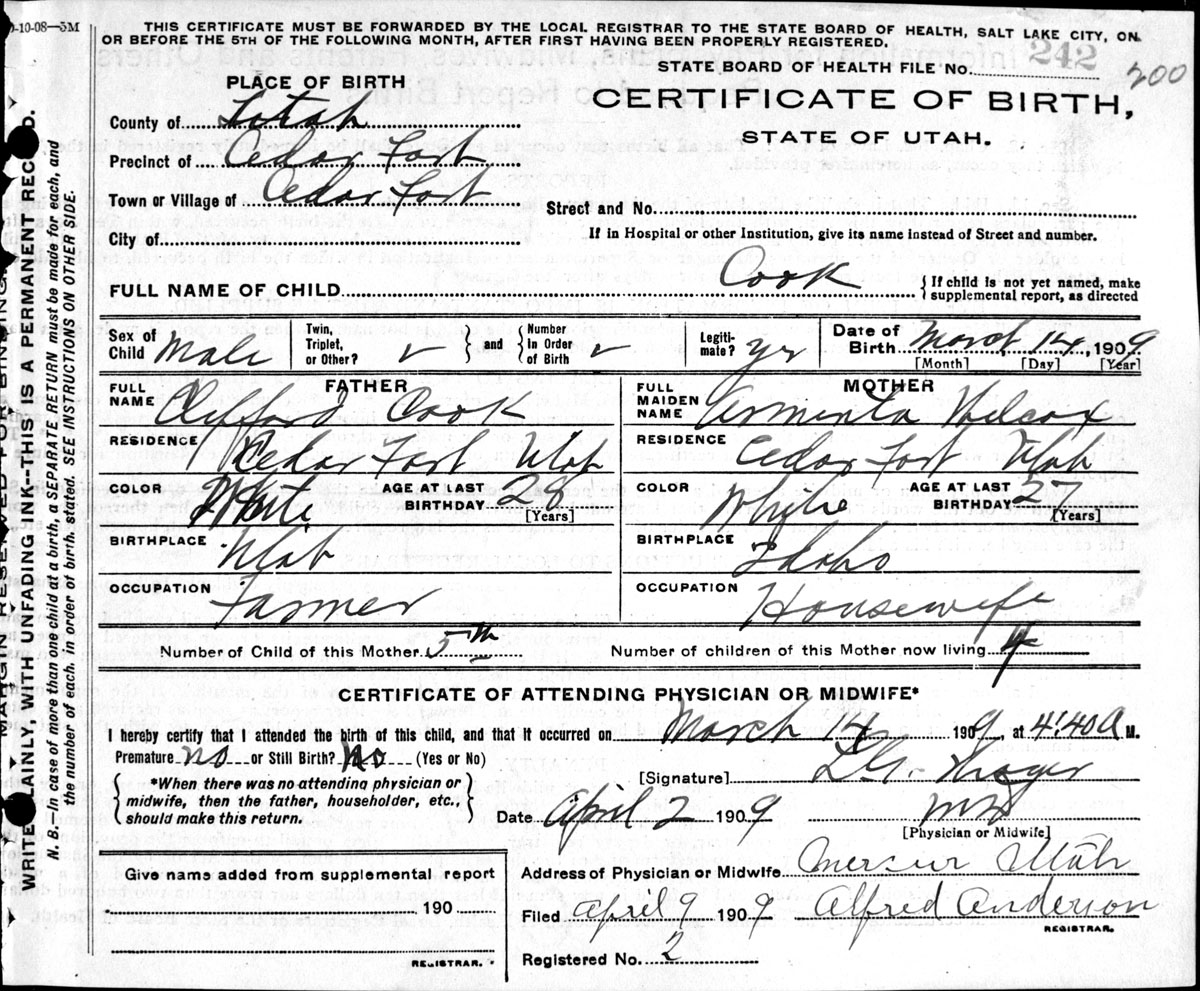 0-10-08—5M
THIS CERTIFICATE MUST BE FORWARDED BY THE LOCAL REGISTRAR TO THE STATE BOARD OF HEALTH, SALT LAKE CITY, ON
OR BEFORE THE 5TH OF THE FOLLOWING MONTH, AFTER FIRST HAVING BEEN PROPERLY REGISTERED.
STATE BOARD OF HEALTH FILE No. 242
200
CERTIFICATE OF BIRTH,
STATE OF UTAH.
PLACE OF BIRTH
County of Utah
Precinct of Cedar Fort
Town or Village of Cedar Fort
Street and No.
City of
If in Hospital or other Institution, give its name instead of Street and number.
FULL NAME OF CHILD Cook { If child is not yet named, make
supplemental report, as directed
Sex of Child Male
Twin, Triplet, or Other? ✓ } and { Number In Order of Birth ✓
Legiti-mate? yes
Date of Birth March 14, 1909
[Month] [Day] [Year]
FATHER
FULL NAME Clifford Cook
RESIDENCE Cedar Fort Utah
COLOR White AGE AT LAST BIRTHDAY 28 [Years]
BIRTHPLACE Utah
OCCUPATION Farmer
MOTHER
FULL MAIDEN NAME Arminta Wilcox
RESIDENCE Cedar Fort Utah
COLOR White AGE AT LAST BIRTHDAY 27 [Years]
BIRTHPLACE Idaho
OCCUPATION Housewife
Number of Child of this Mother 5th Number of children of this Mother now living 4
CERTIFICATE OF ATTENDING PHYSICIAN OR MIDWIFE*
I hereby certify that I attended the birth of this child, and that it occurred on March 14 1909, at 4:40 A M.
Premature no or Still Birth? No (Yes or No)
{ *When there was no attending physician or
midwife, then the father, householder, etc.,
should make this return. }
[Signature]
Date April 2 1909 MD
[Physician or Midwife]
Give name added from supplemental report
190
REGISTRAR.
Address of Physician or Midwife Mercur Utah
Filed April 9 1909 Alfred Anderson
REGISTRAR.
Registered No. 2
MARGIN RESERVED FOR BINDING.
WRITE PLAINLY, WITH UNFADING INK--THIS IS A PERMANENT RECORD.
N. B.—In case of more than one child at a birth, a SEPARATE RETURN must be made for each, and
the number of each, in order of birth, stated. SEE INSTRUCTIONS ON OTHER SIDE.